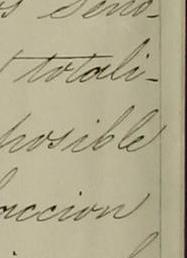 s Seño-
totali-
posible
accion